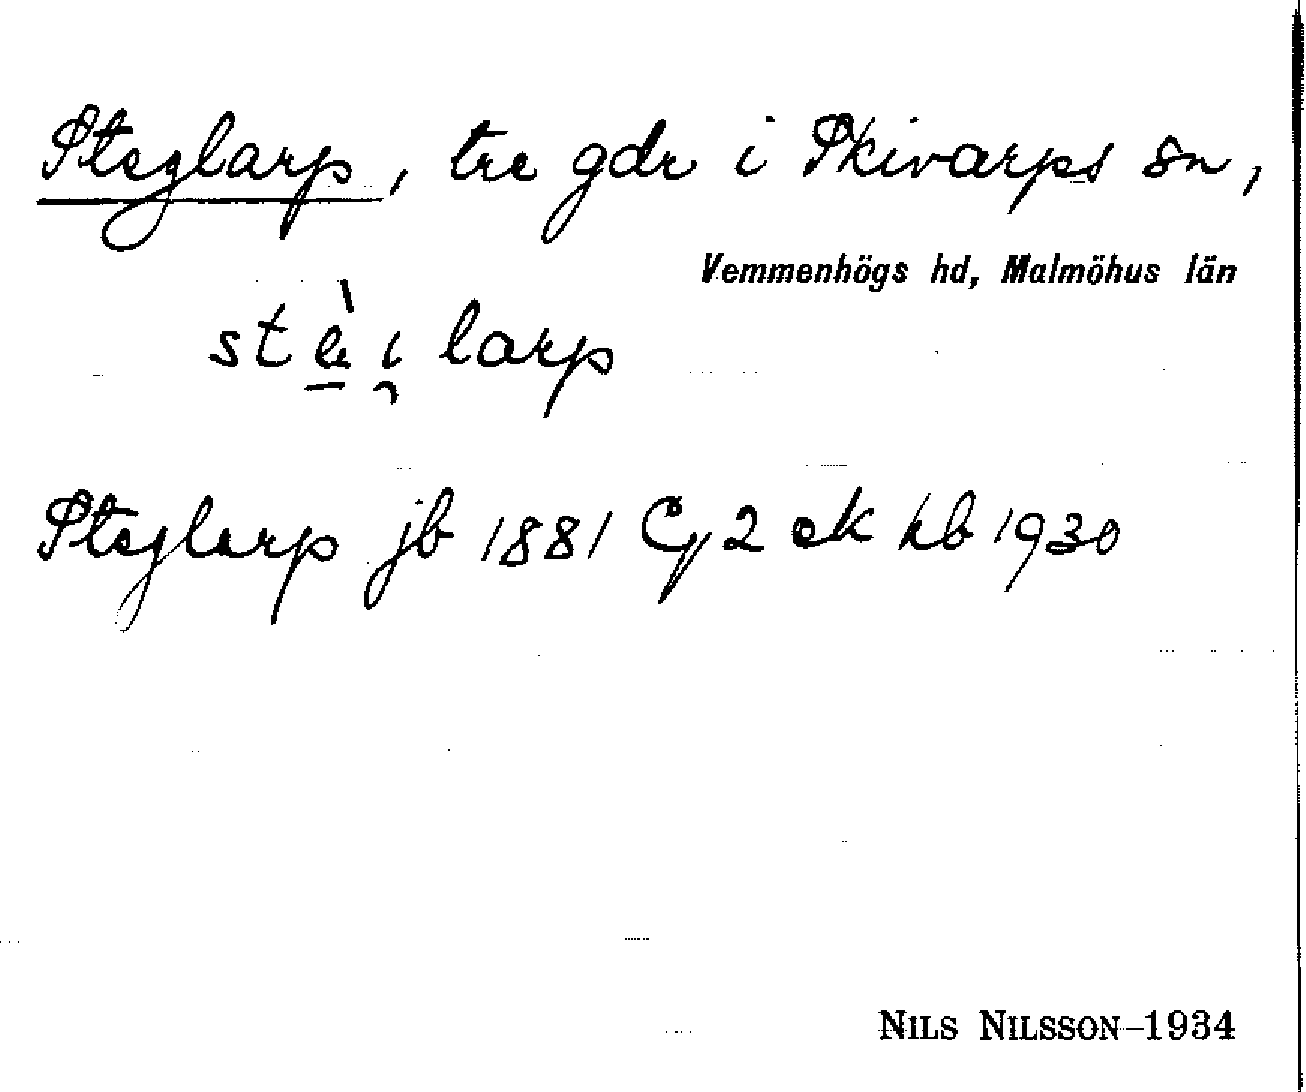 Steglarp, tre gdr i Skivarps sn,
Vemmenhögs hd, Malmöhus län
stæ̀i̯larp
Steglarp jb 1881 Cg 2 ek kb 1930
NILS NILSSON–1934